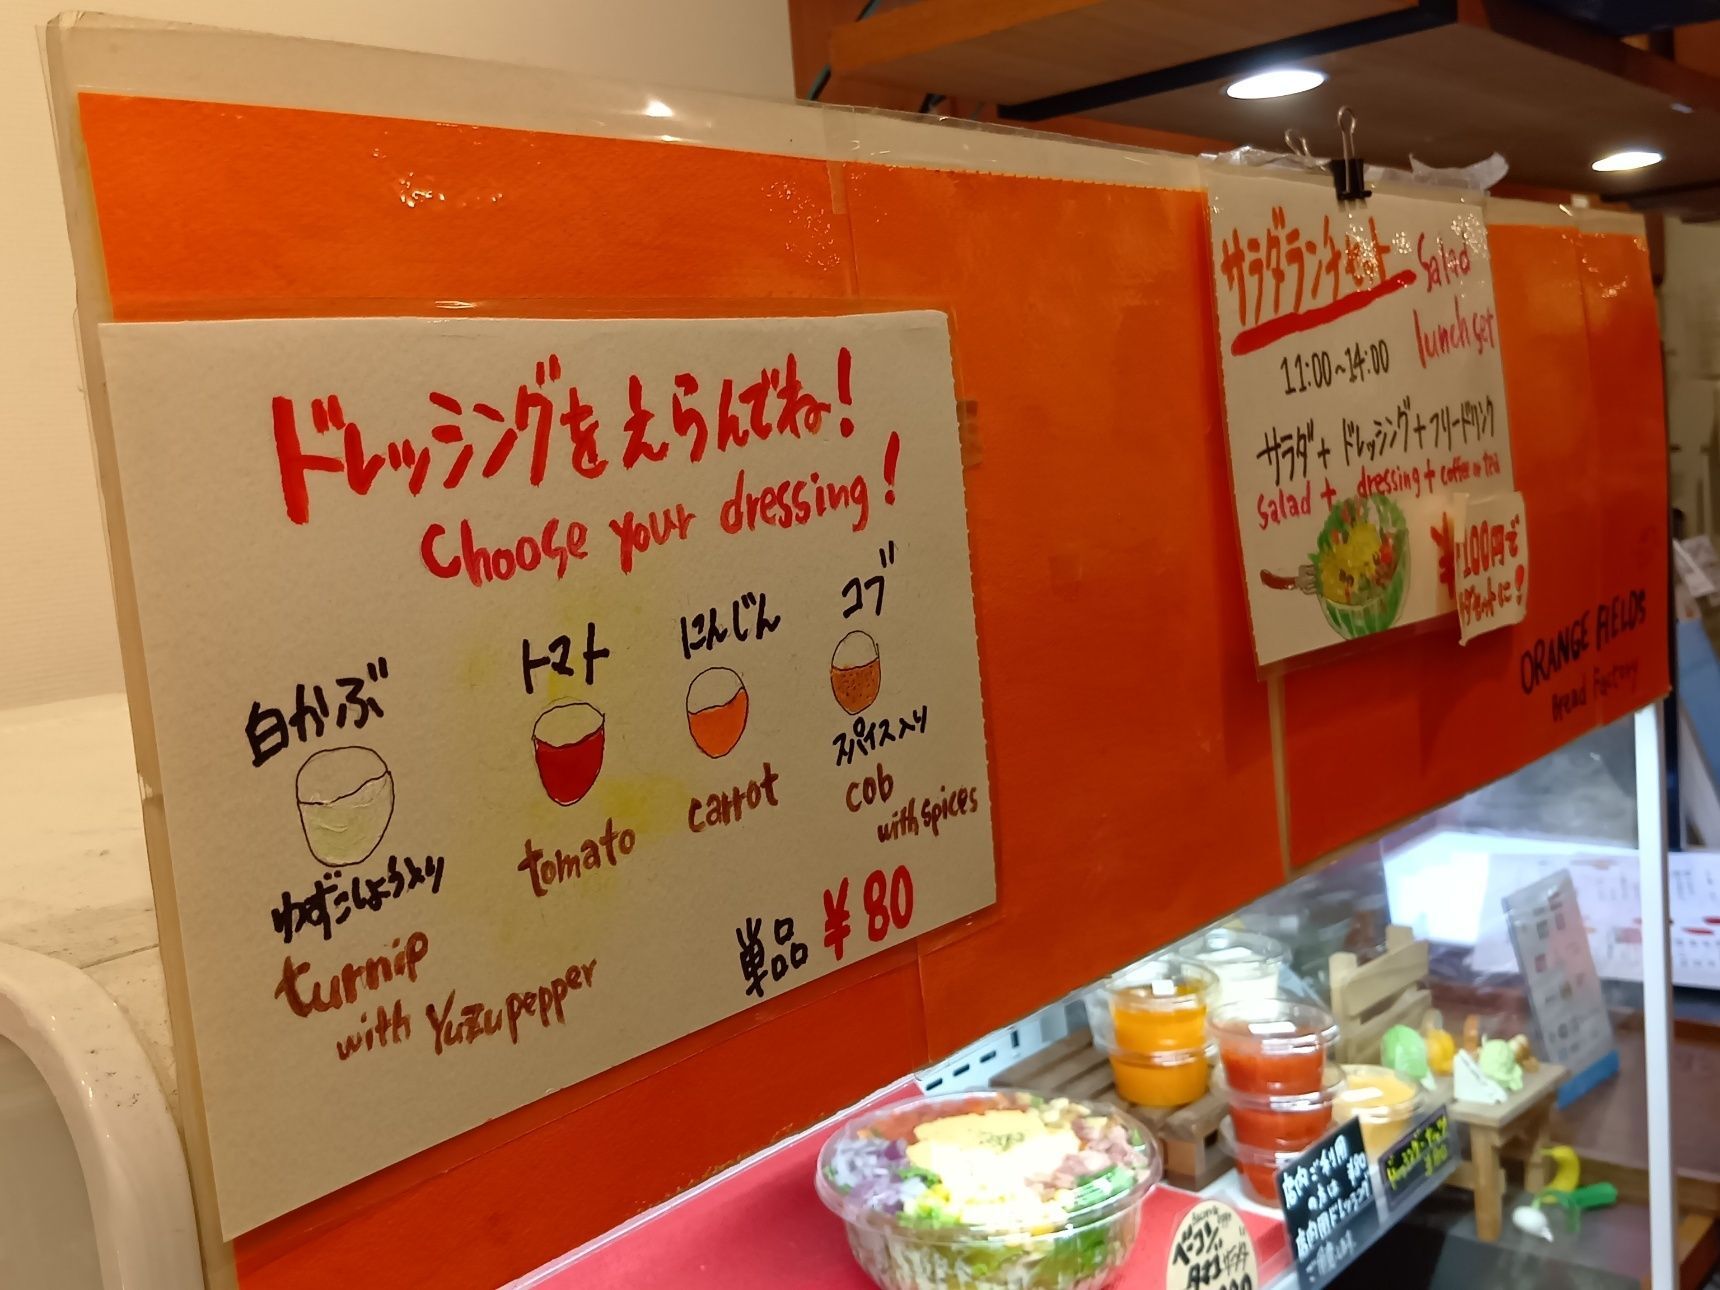 ドレッシングをえらんでね!
Choose your dressing!
白かぶ
ゆずこしょう入り
turnip
with Yuzupepper
トマト
tomato
にんじん
carrot
コブ
スパイス入り
cob
with spices
単品 ¥80
サラダランチセット
Salad
lunch set
11:00~14:00
サラダ+ドレッシング+フリードリンク
salad + dressing + coffee or tea
¥
+100円で
セットに!
ORANGE FIELDS
Bread Factory
店内ご利用
の方は